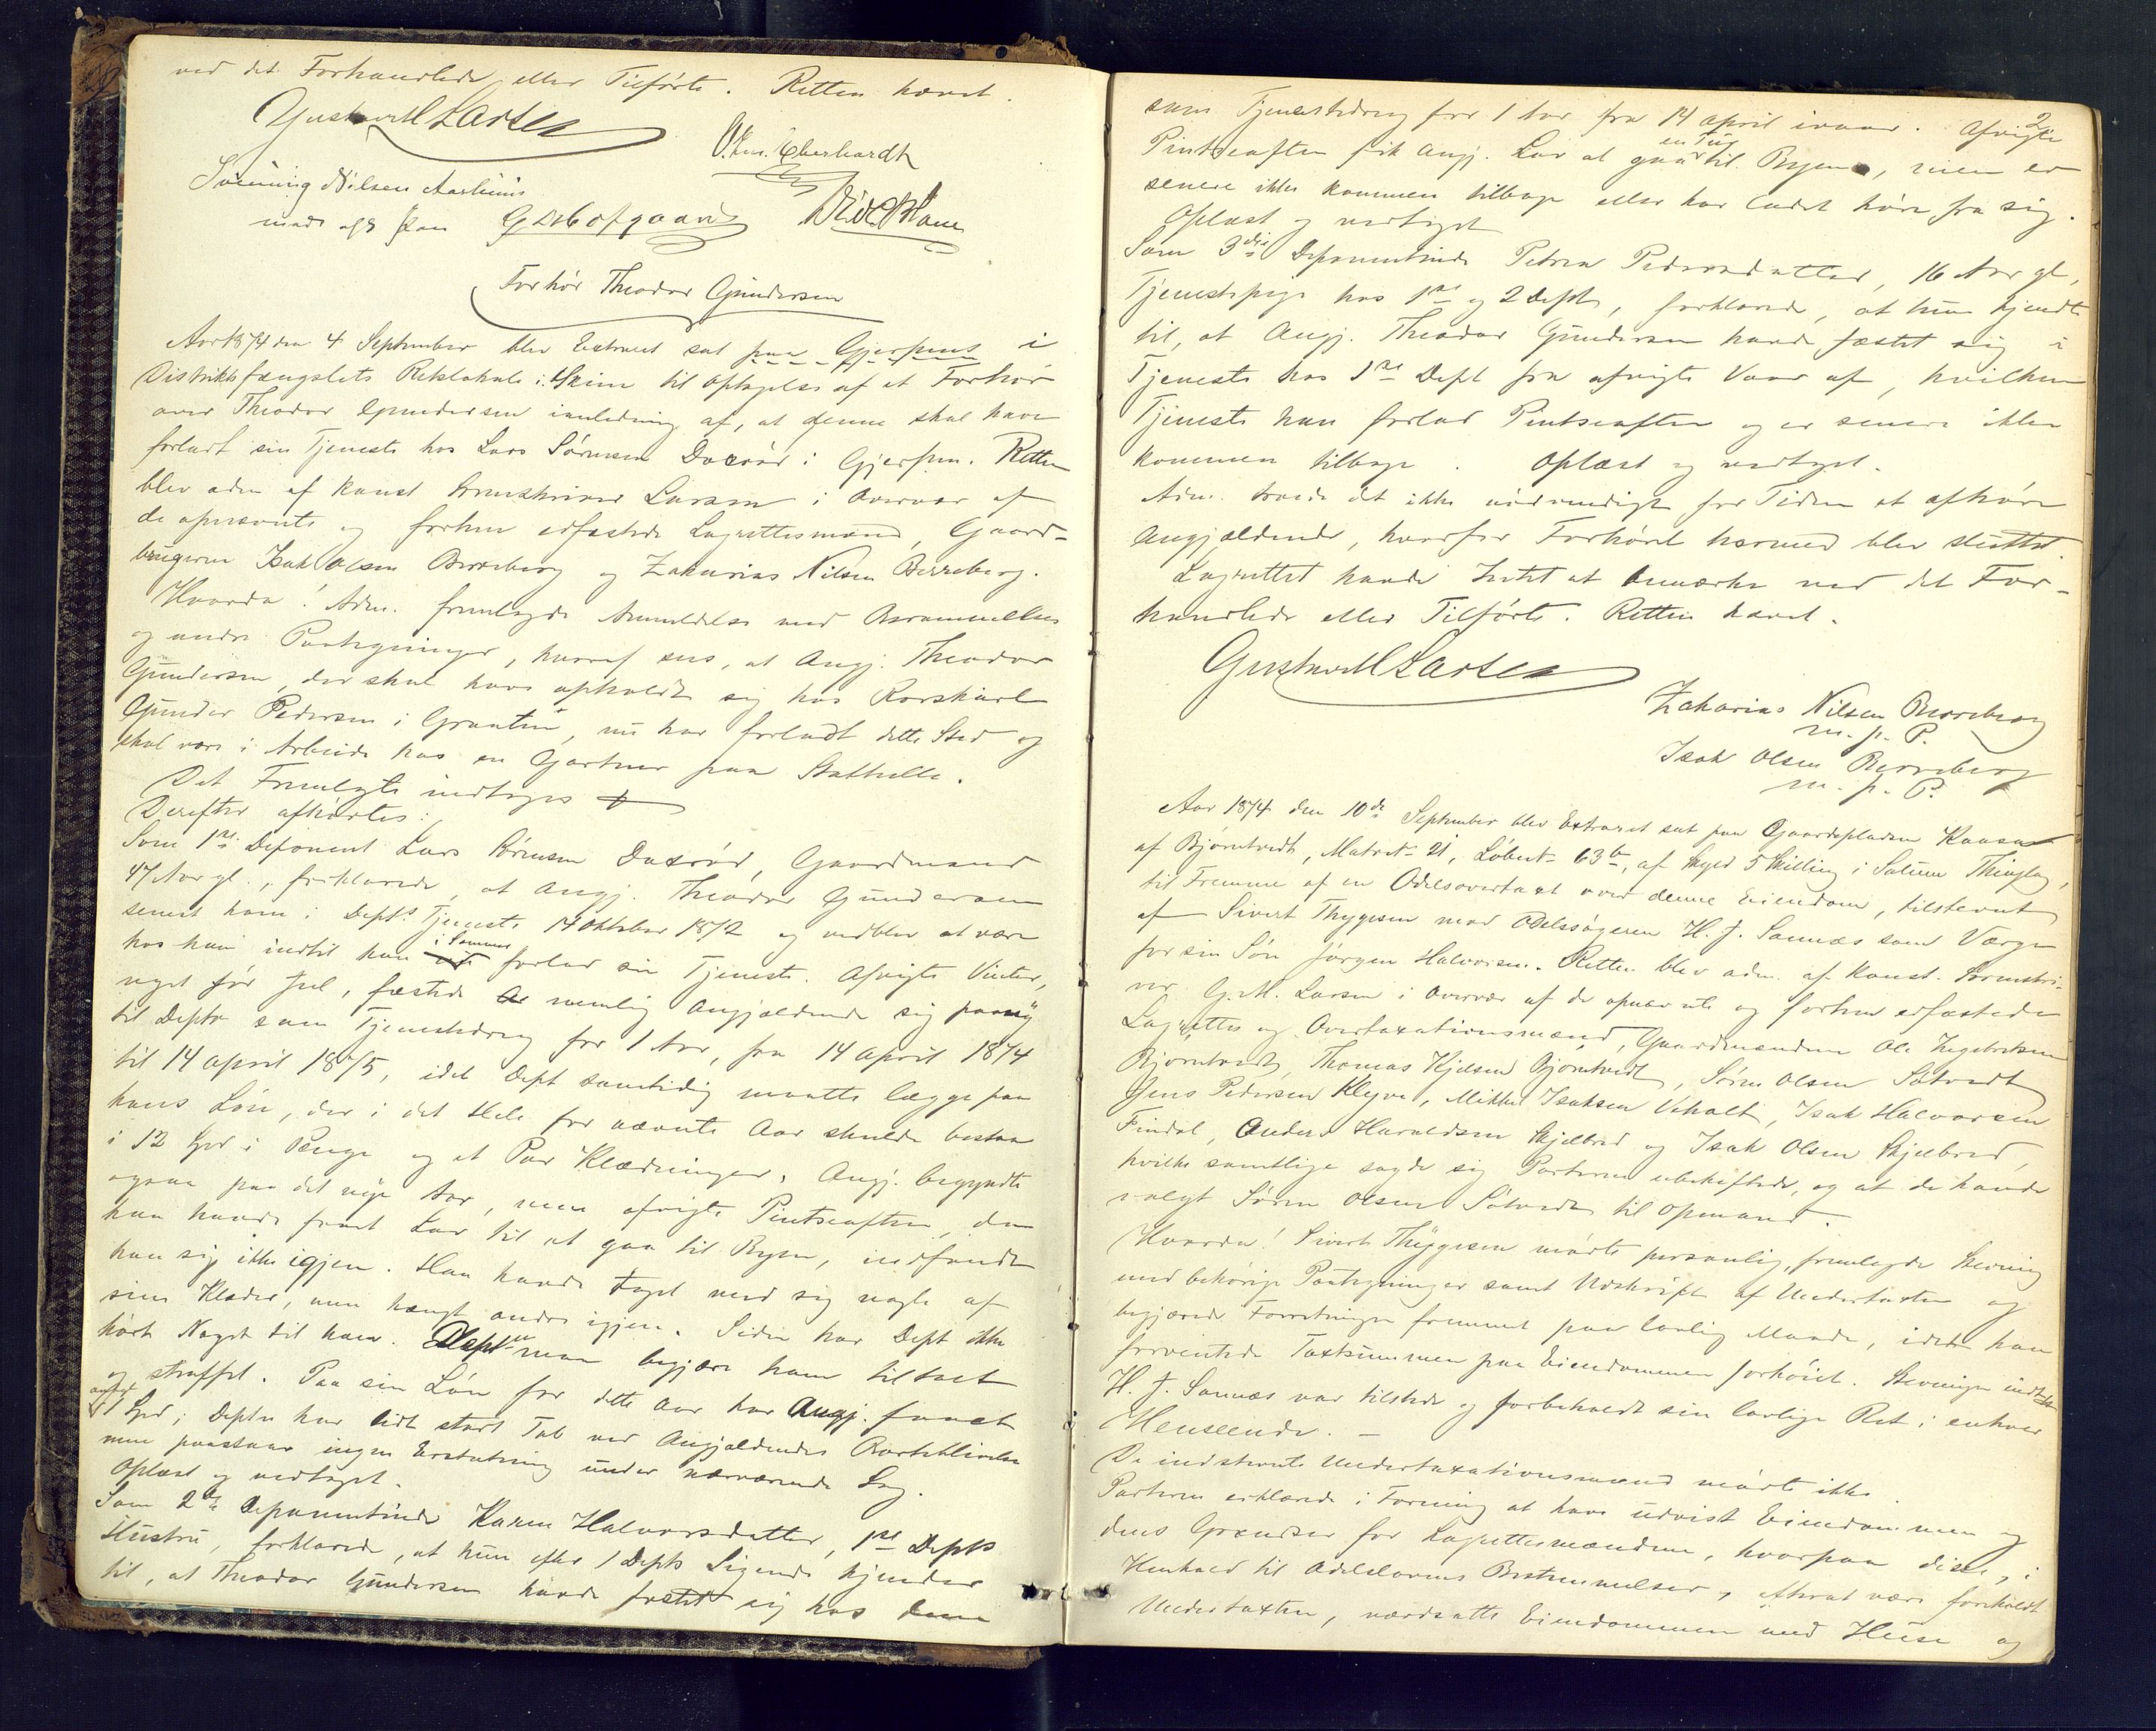 ved det Forhandlede eller Tilførte. Retten hævet.
Gustav M Larsen
O. Chr. Eberhardt
Svennung Nilsen Aarhuus
med ført Pen G. Hofgaard
Forhør Theodor Gundersen
Aar 1874 den 4 September blev Extraret sat paa Gjerpens i
Distriktsfængslets Retslokale i Skien til Optagelse af et Forhør
over Theodor Gundersen i anledning af, at denne skal have
forladt sin Tjeneste hos Lars Sørensen Daxrød i Gjerpen. Retten
blev adm af konst Sorenskriver Larsen i Overvær af
de opnævnte og forhen edfæstede Lagrettesmænd, Gaard-
brugerne Isak Olsen Borreberg og Zakarias Nilsen Berreberg.
Hvorda! Adm. fremlagde Anmeldelse med Berammelse
og andre Paategninger, hvoraf sees, at Angj. Theodor
Gundersen, der skal have opholdt sig hos Korskarl
Gunder Pedersen i Graaten, nu har forladt dette Sted og
skal være i Arbeide hos en Gartner paa Stathelle.
Det Fremlagte indtages
Derefter afhørtes:
Som 1ste Deponent Lars Sørensen Daxrød, Gaardmand
47 Aar gl., forklarede, at Angj. Theodor Gundersen
senest kom i Depts Tjeneste 14 Oktober 1872 og vedblev at være
hos ham indtil han i Sommer forlod sin Tjeneste. Afvigte Vinter,
noget før Jul, fæstede nemlig Angjældende sig paany
til Deptn som Tjenestedreng for 1 Aar, fra 14 April 1874
til 14 April 1875, idet Dept samtidig maatte lægge paa
hans Løn, der i det Hele for nævnte Aar skulde bestaa
i 12 Spd i Penge og et Par Klædninger. Angj. begyndte
ogsaa paa det nye Aar, men afvigte Pintseaften, da
han havde faaet Lov til at gaa til Byen, indfandt
han sig ikke igjen. Han havde taget med sig nogle af
sine Klæder, men hængt andre igjen. Siden har Dept ikke
hørt Noget til ham. Deptn maa begjære ham tiltalt
og straffet. Paa sin Løn for dette Aar har Angj. faaet
1 Spd; Deptn har lidt stort Tab ved Angjældendes Bortblivelse
men paastaar ingen Erstatning under nærværende Sag.
Oplæst og vedtaget.
Som 2den Deponentinde Karen Halvorsdatter, 1ste Depts
Hustru, forklarede, at hun efter 1 Depts Sigende kjender
til, at Theodor Gundersen havde fæstet sig hos denne
2
som Tjenestedreng for 1 Aar fra 14 April ivaar. Afvigte
Pintseaften fik Angj. Lov at gaa en Tur til Byen, men er
senere ikke kommen tilbage eller har ladet høre fra sig.
Oplæst og vedtaget
Som 3die Deponentinde Petrea Pedersdatter, 16 Aar gl,
Tjenestepige hos 1ste og 2 Dept, forklarede, at hun kjendte
til, at Angj. Theodor Gundersen havde fæstet sig i
Tjeneste hos 1ste Dept fra afvigte Vaar af, hvilken
Tjeneste han forlod Pintseaften og er senere ikke
kommen tilbage. Oplæst og vedtaget.
Adm. troede det ikke nødvendigt for Tiden at afhøre
Angjældende, hvorfor Forhøret hermed blev sluttet.
Lagrettet havde Intet at bemærke ved det For-
handlede eller Tilførte. Retten hævet.
Gustav M Larsen
Zakarias Nilsen Borreberg
m. p. P.
Isak Olsen Berreberg
m. p. P.
Aar 1874 den 10de September blev Extraret sat paa Gaardspladsen Kaasa
af Bjørntvedt, Matr.No 21, Løbe.No 63b, af Skyld 5 Skilling i Solum Thinglag,
til Fremme af en Odelsovertaxt over denne Eiendom, tilstevnt
af Sivert Thygesen mod Odelssøgeren H. J. Sannæs som Værge
for sin Søn Jørgen Halvorsen. Retten blev adm. af konst. Sorenskri-
ver G. M. Larsen i Overvær af de opnævnte og forhen edfæstede
Lagrettes og Overtaxationsmænd, Gaardmændene Ole Ingebretsen
Bjørntvedt, Thomas Kjelsen Bjørntvedt, Søren Olsen Solvedt
Jens Pedersen Klyve, Mikkel Isaksen Veholt, Isak Halvorsen
Findal, Anders Haraldsen Skjelbred og Isak Olsen Skjelbred,
hvilke samtlige sagde sig Parterne ubeheftede, og at de havde
valgt Søren Olsen Solvedt til Opmand.
Hvorda! Sivert Thygesen mødte personlig, fremlagde Stevning
med behørige Paategninger samt Udskrift af Undertaxten og
begjærede Forretningen fremmet paa lovlig Maade, idet han
forventede Taxtsummen paa Eiendommen forhøiet. Stevningen indtages
H. J. Sannæs var tilstede og forbeholdt sin lovlige Ret i enhver
Henseende. —
De indstevnte Undertaxationsmænd mødte ikke.
Parterne erklærede i Forening at have udvist Eiendommen og
dens Grændser for Lagrettesmændene, hvorpaa disse, i
Henhold til Odelslovens Bestemmelser, efterat være foreholdt
Undertaxten, værdsatte Eiendommen med Huse og